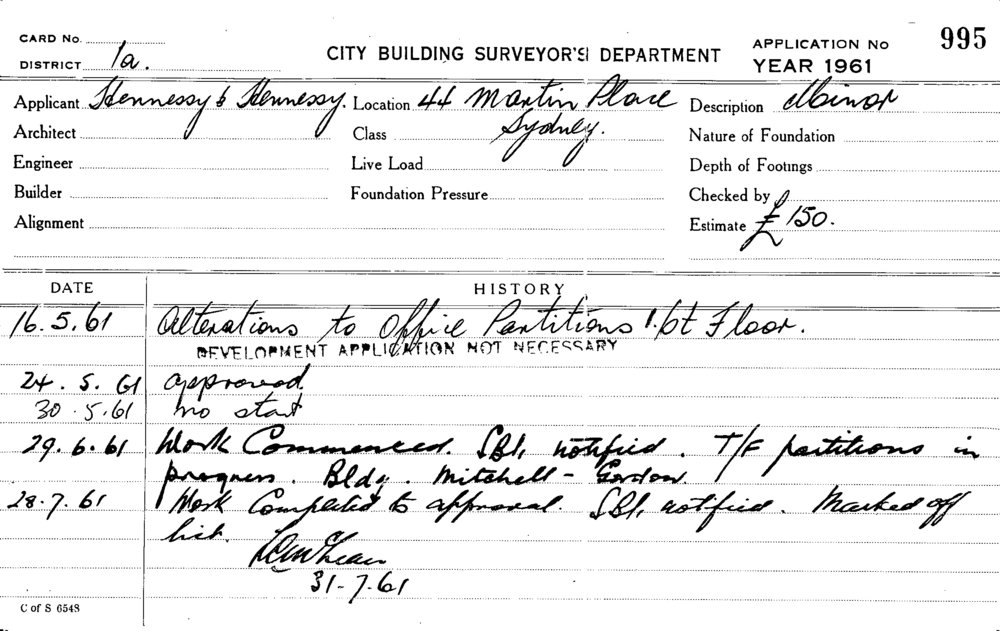 CARD No.
DISTRICT 1a.
CITY BUILDING SURVEYOR'S DEPARTMENT
APPLICATION No 995
YEAR 1961
Applicant Hennessy & Hennessy. Location 44 Martin Place Description Minor
Architect Class Sydney. Nature of Foundation
Engineer Live Load Depth of Footings
Builder Foundation Pressure Checked by
Alignment Estimate £150.
DATE HISTORY
16.5.61 Alterations to Office Partitions 1st Floor.
DEVELOPMENT APPLICATION NOT NECESSARY
24.5.61 approved
30.5.61 no start
29.6.61 Work Commenced. notified. T/F partitions in
progress. Bldg. Mitchell - Gordon.
28.7.61 Work Completed to approval. notified. Marked off
list.
31-7.61
C of S 6548